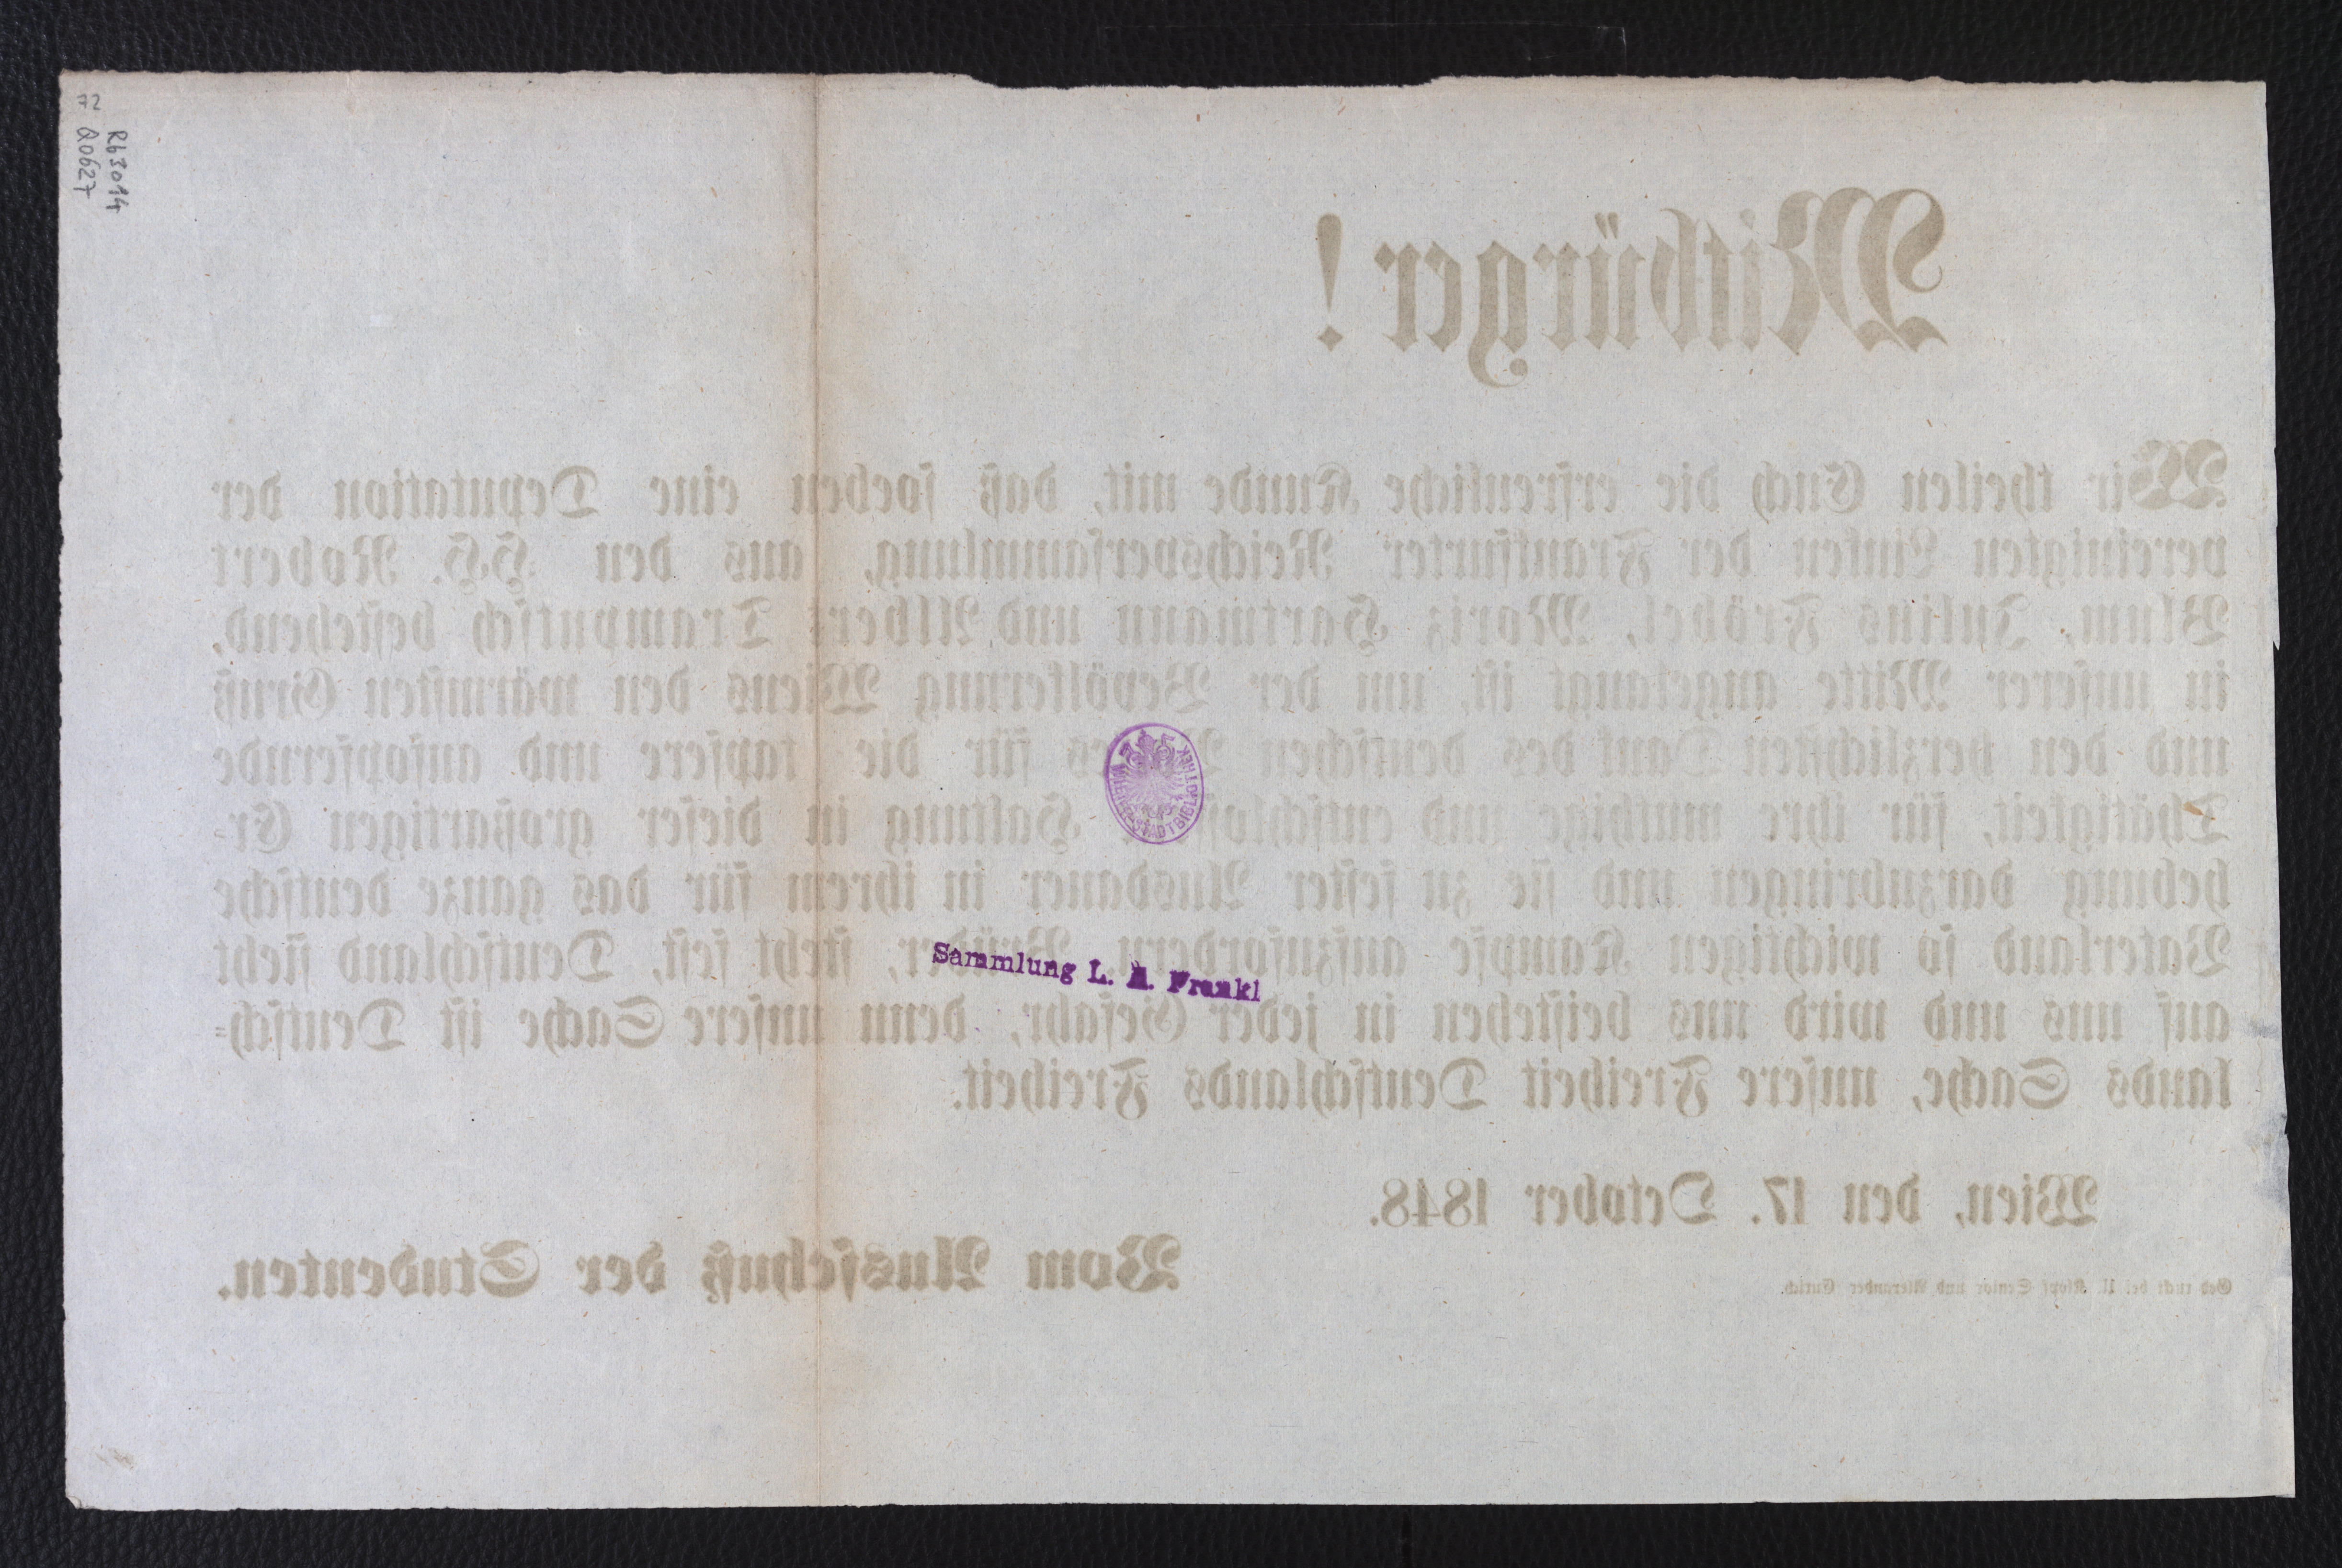 72
Q0627
Rb3014
Mitbürger!
Wir theilen Euch die erfreuliche Kunde mit, daß soeben eine Deputation der
vereinigten Linken der Frankfurter Reichsversammlung, aus den HH. Robert
Blum, Julius Fröbel, Moriz Hartmann und Albert Trampusch bestehend,
in unserer Mitte angelangt ist, um der Bevölkerung Wiens den wärmsten Gruß
und den herzlichsten Dank des deutschen für die tapfere und aufopfernde
Thätigkeit, für ihre muthige und Haltung in dieser großartigen Er-
hebung darzubringen und sie zu fester Ausdauer in ihrem für das ganze deutsche
Vaterland so wichtigen Kampfe aufzufordern. Brüder, steht fest, Deutschland sieht
auf uns und wird uns beistehen in jeder Gefahr, denn unsere Sache ist Deutsch-
lands Sache, unsere Freiheit Deutschlands Freiheit.
Wien, den 17. October 1848.
Vom Ausschuß der Studenten.
Gedruckt bei U. Klopf Senior und Alexander Eurich.
WIENER STADTBIBLIOTHEK
Sammlung L. A. Frankl